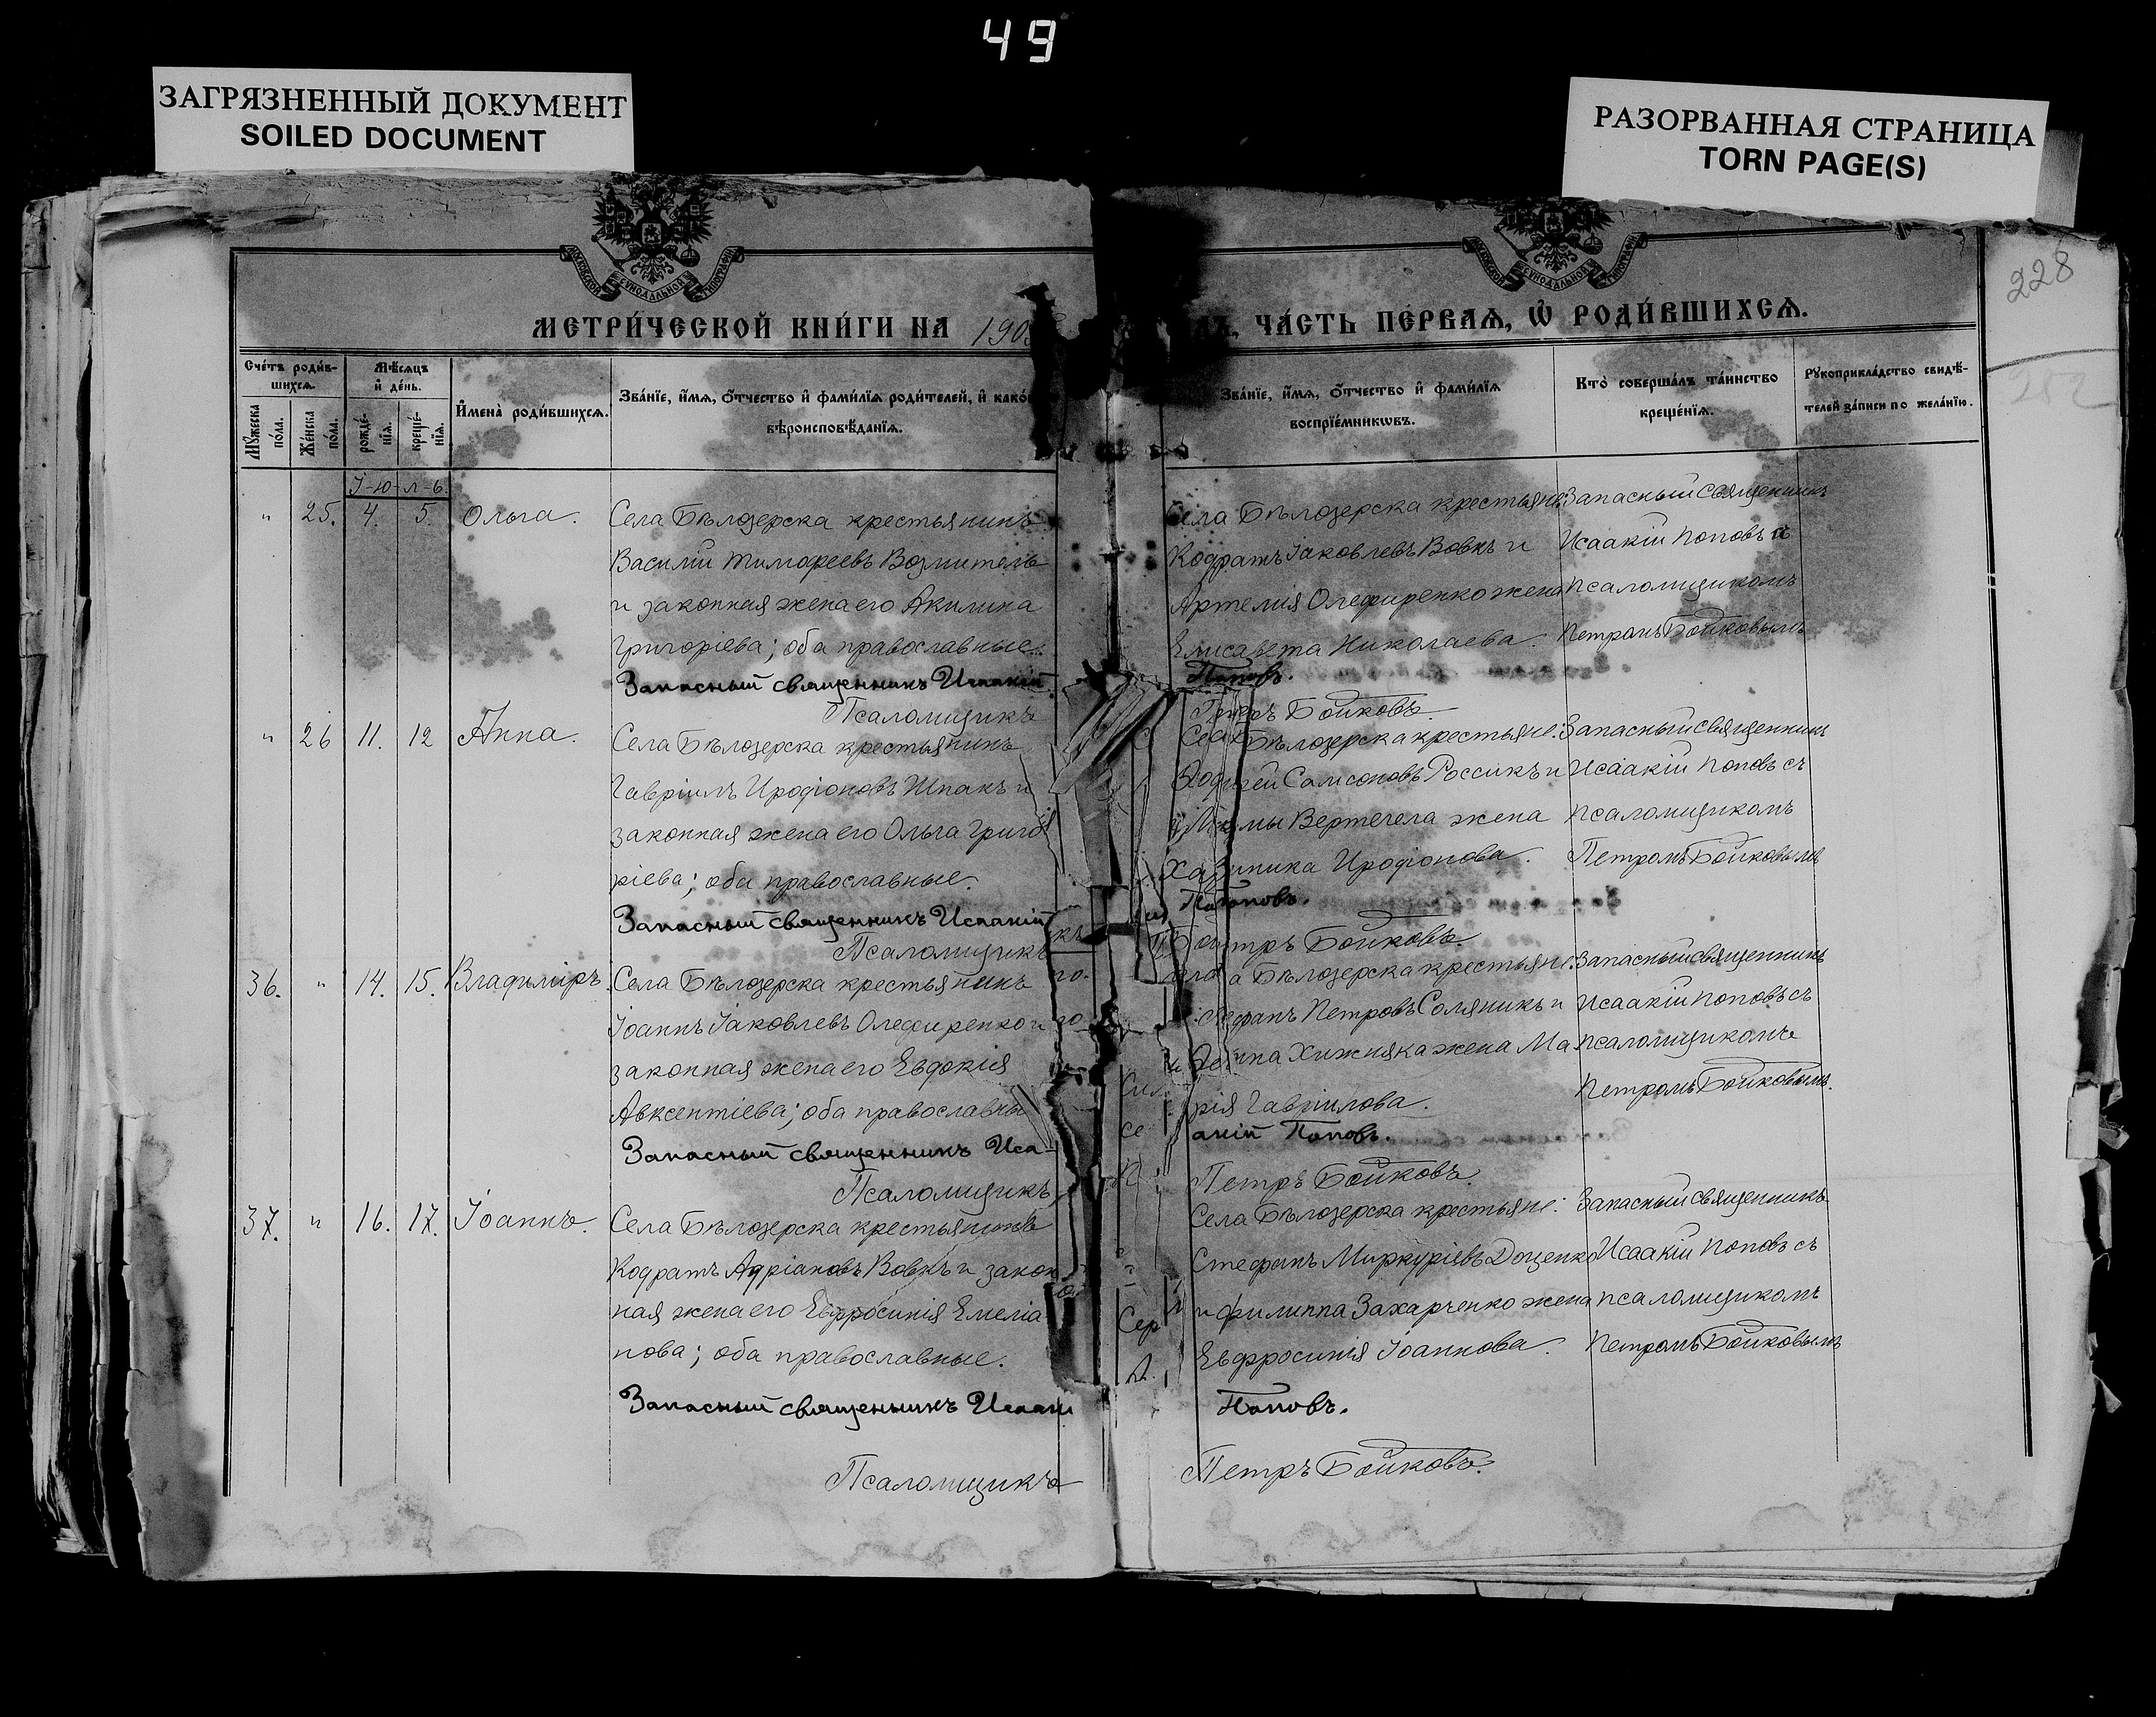 49
ЗАГРЯЗНЕННЫЙ ДОКУМЕНТ
SOILED DOCUMENT
РАЗОРВАННАЯ СТРАНИЦА
TORN PAGE(S)
228
252
МОСКОВСКОЙ СѴНОДАЛЬНОЙ ТИПОГРАФІИ
МОСКОВСКОЙ СѴНОДАЛЬНОЙ ТИПОГРАФІИ
МЕТРИ́ЧЕСКОЙ КНИ́ГИ НА 190
ЧА́СТЬ ПЕ́РВАѦ, Ѽ РОДИ́ВШИХСѦ.
Сче́тъ роди́в-
шихсѧ.
Мꙋжеска по́ла.
Же́нска по́ла.
Мѣ́сѧцъ
и҆ де́нь.
рожде́-
нїѧ.
креще́-
нїѧ.
И҆мена̀ роди́вшихсѧ.
Зва́нїе, и҆́мѧ, ѻ҆́тчество и҆ фами́лїѧ роди́телей, и҆ како́
вѣроисповѣ́данїѧ.
Зва́нїе, и҆́мѧ, ѻ҆́тчество и҆ фами́лїѧ
воспрїе́мникѡвъ.
Кто̀ соверша́лъ та́инство
креще́нїѧ.
Рꙋкоприкла́дство свидѣ́-
телей за́писи по жела́нїю.
І-ю-л-ь.
" 25. 4. 5. Ольга.
Села Бѣлозерска крестьянинъ
Василій Тимофеевъ Возмитель
и законная жена его Акилина
Григоріева; оба православные.
Запасный священникъ Исаакій
Псаломщикъ
Села Бѣлозерска крестьяне:
Кодратъ Іаковлевъ Вовкъ и
Артемія Олефиренко жена
Елисавета Николаева.
Поповъ.
Петръ Бойковъ.
Запасный священникъ
Исаакій Поповъ съ
псаломщикомъ
Петромъ Бойковымъ
" 26 11. 12 Анна.
Села Бѣлозерска крестьянинъ
Гавріилъ Иродіоновъ Шпакъ и
законная жена его Ольга Григо
ріева; оба православные.
Запасный священникъ Исаакій
Псаломщикъ
Бѣлозерска крестьяне:
Самсоновъ Россикъ и
Вертегела жена
Иродіонова.
Поповъ.
Бойковъ.
Запасный священникъ
Исаакій Поповъ съ
псаломщикомъ
Петромъ Бойковымъ
36. " 14. 15. Владиміръ.
Села Бѣлозерска крестьянинъ
Іоаннъ Іаковлевъ Олефиренко и
законная жена его Евдокія
Авксентіева; оба православны
Запасный священникъ Иса-
Псаломщикъ
Бѣлозерска крестьяне:
Петровъ Соляникъ и
Хижняка жена Ма
рія Гавріилова.
акій Поповъ.
Петръ Бойковъ.
Запасный священникъ
Исаакій Поповъ съ
псаломщикомъ
Петромъ Бойковымъ.
37. " 16. 17. Іоаннъ.
Села Бѣлозерска крестьянинъ
Кодратъ Адріановъ Вовкъ и закон
ная жена его Евфросинія Емеліа
нова; оба православные.
Запасный священникъ Исааки
Псаломщикъ
Села Бѣлозерска крестьяне:
Стефанъ Миркуріевъ Доценко
и Филиппа Захарченко жена
Евфросинія Іоаннова.
Поповъ.
Петръ Бойковъ.
Запасный священникъ
Исаакій Поповъ съ
псаломщикомъ
Петромъ Бойковымъ